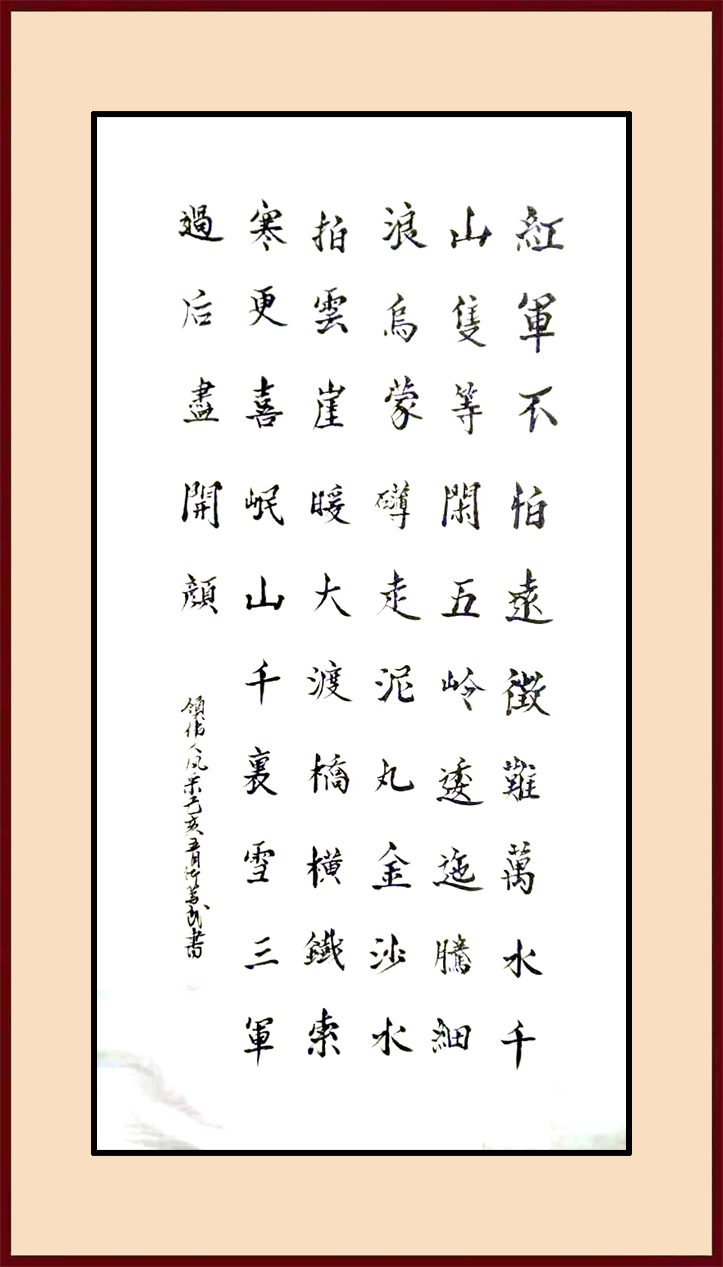 紅軍不怕遠徵難萬水千
山隻等閑五岭逶迤騰細
浪烏蒙礴走泥丸金沙水
拍雲崖暖大渡橋橫鐵索
寒更喜岷山千裏雪三軍
過后盡開顔
領偉人风采己亥五月書